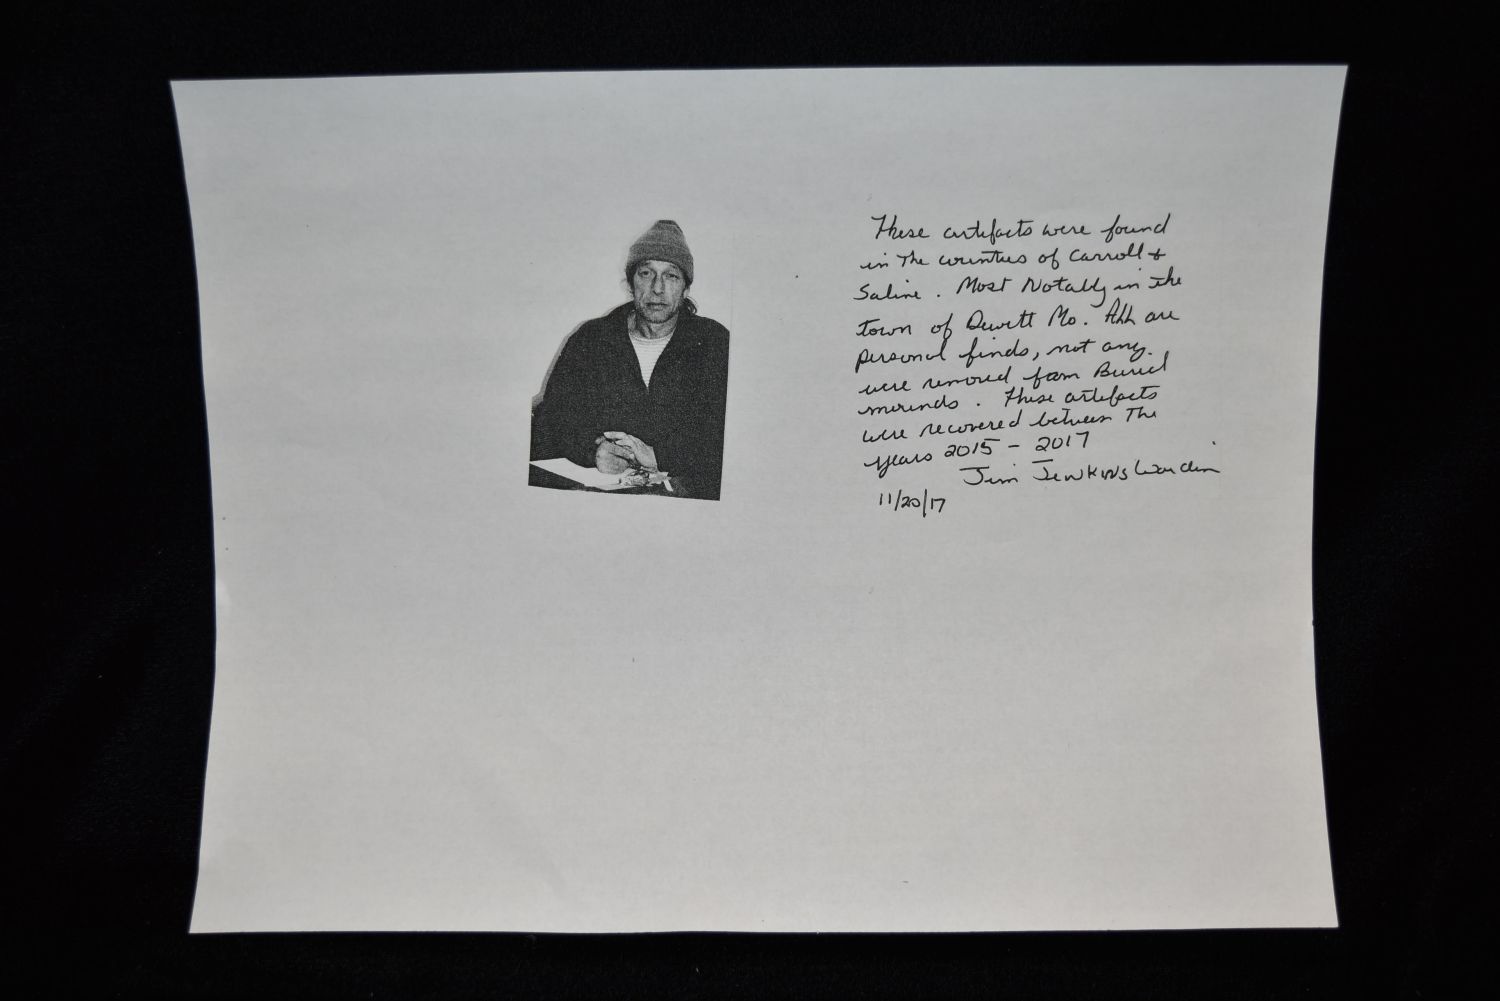 These artifacts were found
in The counties of Carroll &
Saline. Most Notably in the
town of Dewitt Mo. All are
personal finds, not any.
were removed from Buriel
mounds. These artifacts
were recovered between The
years 2015 - 2017
Jim Jenkins
11/20/17